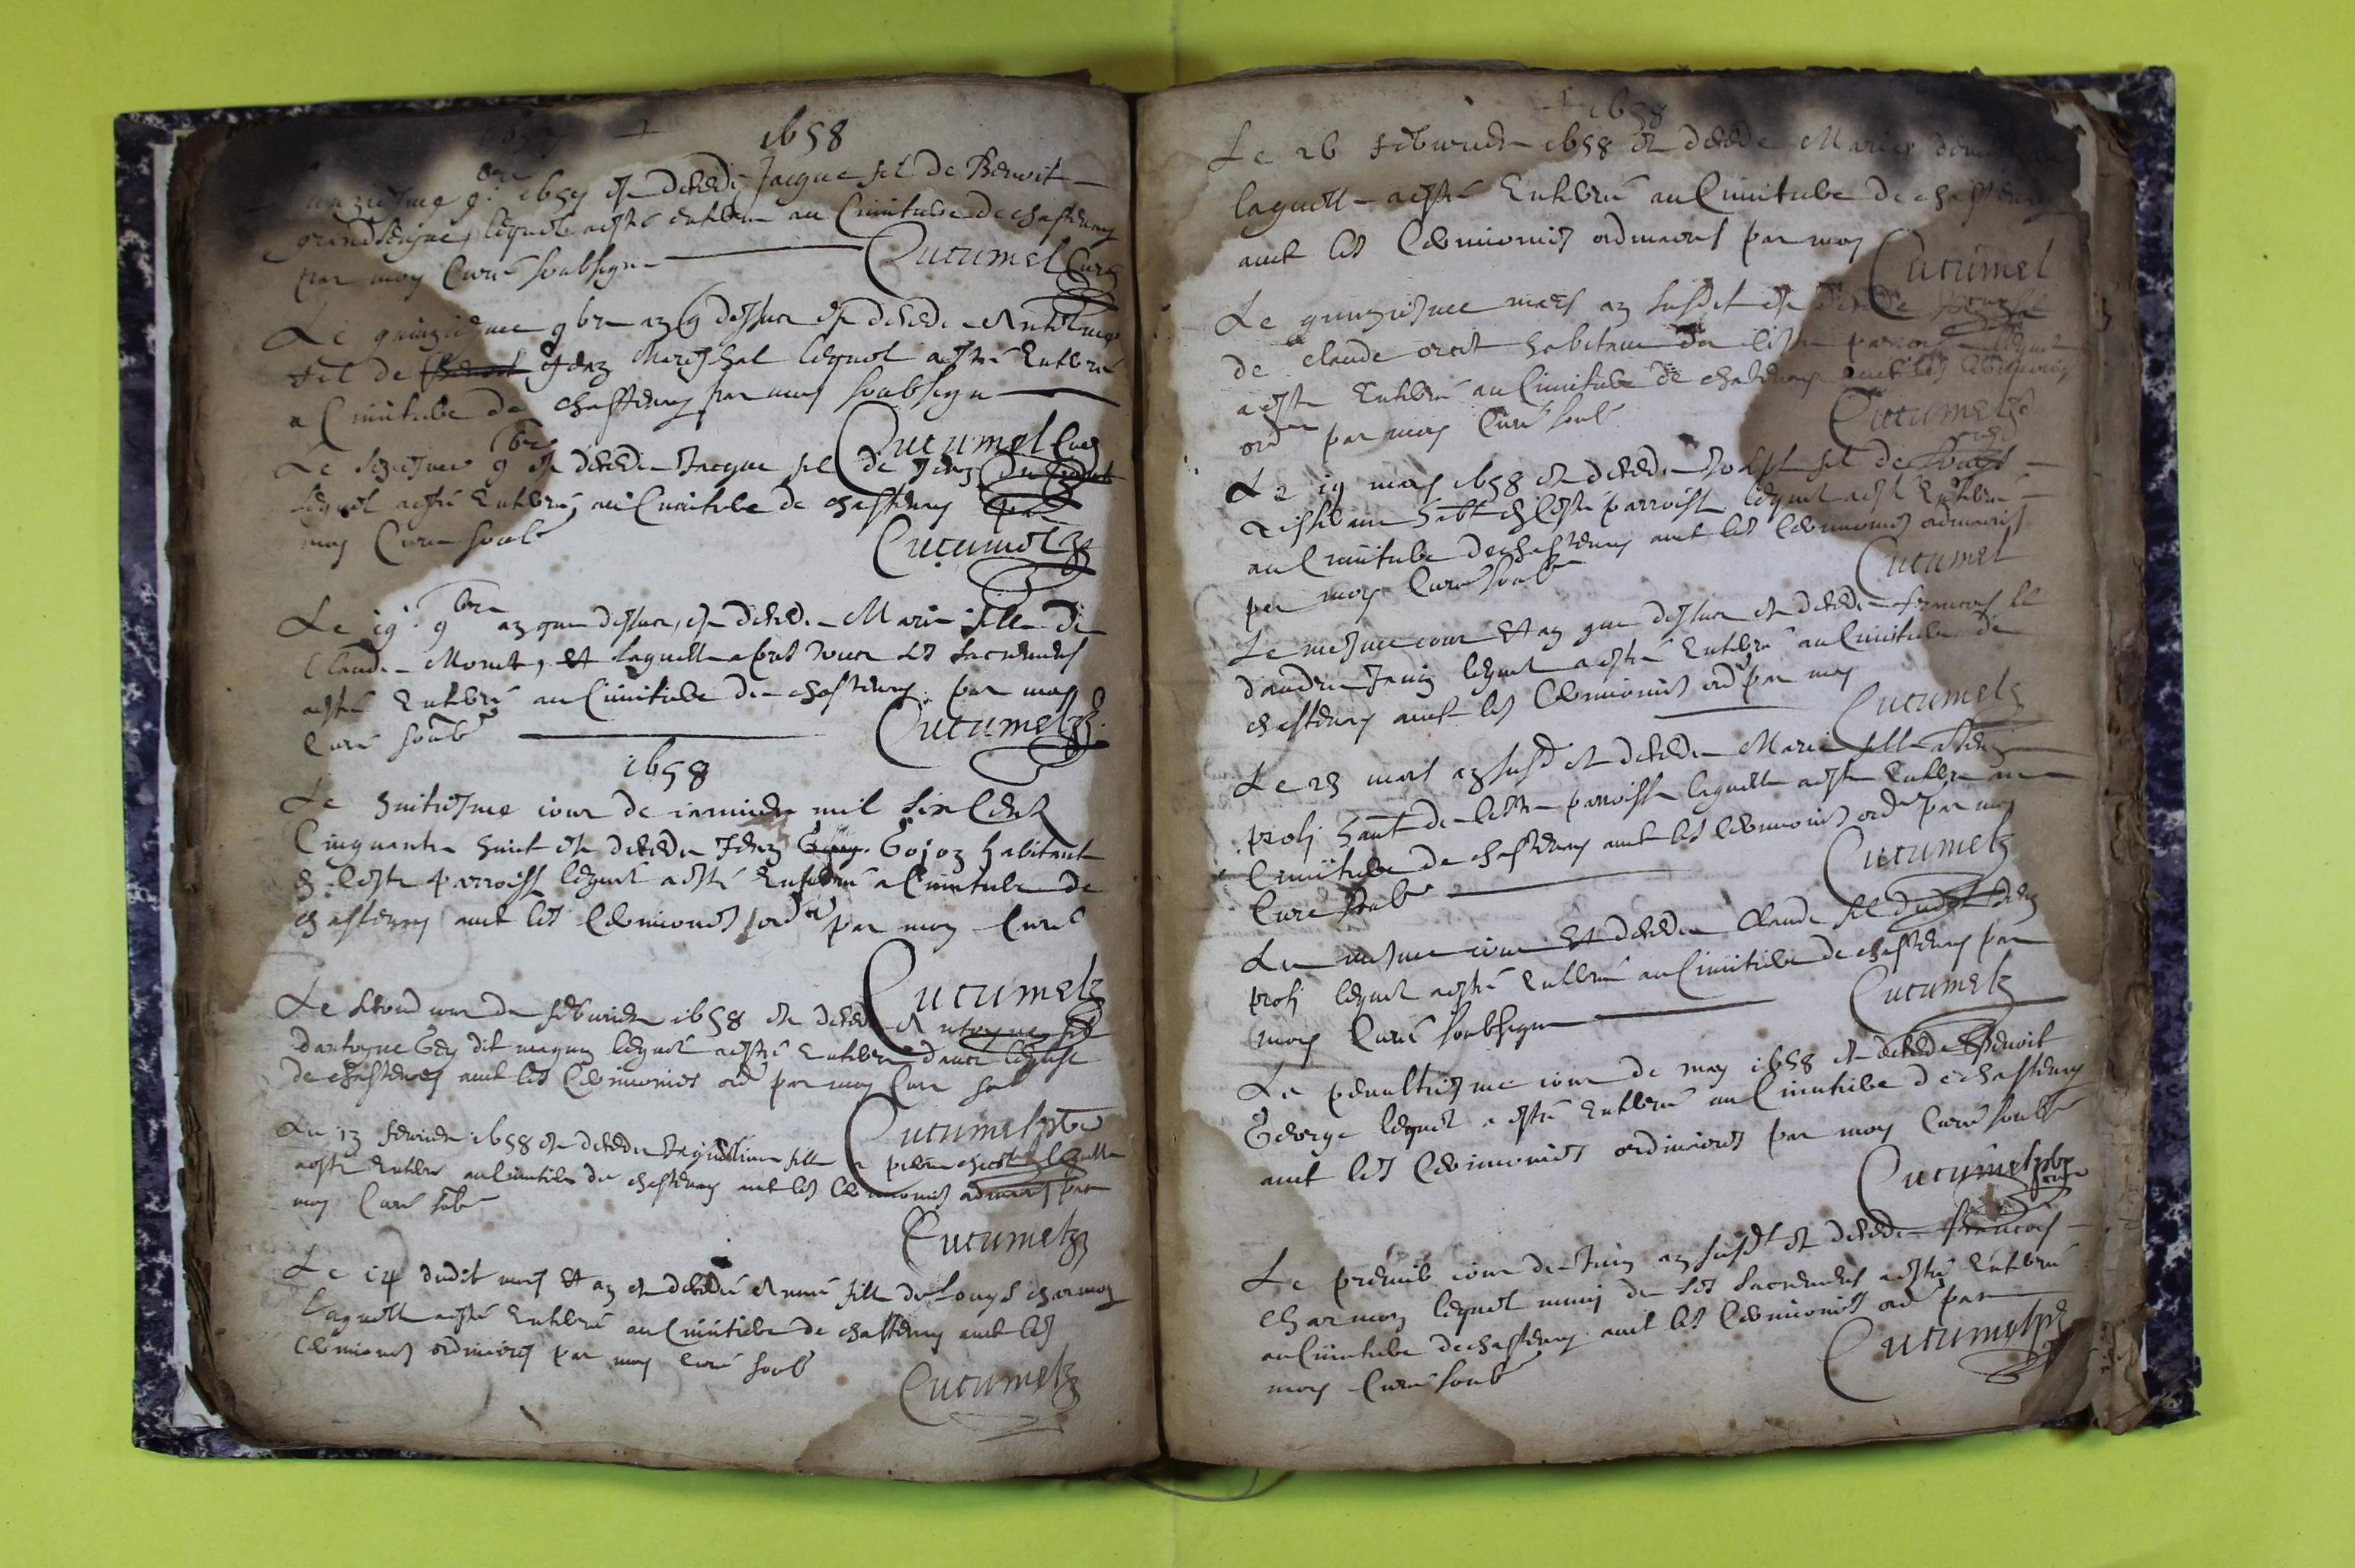 1658
unziesme 9bre 1657 est decede Jacque fil de Benoit
lequel a esté enterre au Cimitiere de chasteney
par moy Curé soubsigne Cucumel Curé
Le quinziesme 9bre an que dessus est decede Anthoine
fil de Jean Mareschal lequel a esté Enterré
a Cimitiere de chasteney par moy soubsigne
Cucumel Curé
Le seziesme 9bre est decede Jacque fil de Jean
lequel a esté Enterré au Cimitiere de chasteney par
moy Curé soub
Cucumel
Le 19 9bre an que dessus est decede Marie fille de
Claude Monet, et laquelle a esté
a esté Enterré au Cimitiere de chasteney par moy
Curé soub Cucumel
1658
Le huitiesme iour de ianvier mil six Cent
Cinquante huict est decede Jean Gojoz habitant
en ceste parroisse lequel a esté Enterré a Cimitiere de
chasteney avec les Ceremonies ord par moy Curé
Cucumel
Le second iour de febvrier 1658 est decede Antoyne fil
dantoyne Gey dit magnin lequel a esté Enterré dans leglise
de chasteney avec les Ceremonies ord par moy Curé soub
Cucumel pbre
Le 13 febvrier 1658 est decede Jaqueline fille a pierre laquelle
a esté Enterré au Cimitiere de chasteney avec les Ceremonies ordinaires par
moy Curé soub
Cucumel
Le 14 dudit mois et an est decedé Anne fille de Louys charmoz
laquelle a esté Enterré au Cimitiere de chasteney avec les
Ceremonies ordinaires par moy Curé soub
Cucumel
1658
Le 26 febvrier 1658 est decede Marie
laquelle a esté Enterré au Cimitiere de chasteney
avec les Ceremonies ordinaires par moy Cucumel
Le quinziesme mars an susdit est decede
de claude habitant en ceste parroisse lequel
a esté Enterré au Cimitiere de chasteney avec les Ceremonies
ord par moy Curé soub Cucumel
Le 19 mars 1658 est decede Joseph fil de
habt en ceste parroisse lequel a esté Enterré
au Cimitiere de chasteney avec les Ceremonies ordinaires
par moy Curé soub Cucumel
Le mesme iour et an que dessus est decede francois fil
dandre Janin lequel a esté Enterré au Cimitiere de
chasteney avec les Ceremonies ord par moy
Cucumel
Le 23 mars an susd est decede Marie fille a Jean
habt de ceste parroisse laquelle a esté Enterré au
Cimitiere de chasteney avec les Ceremonies ord par moy
Curé soub Cucumel
Le mesme iour est decede Claude fil dudit Jean
lequel a esté Enterré au Cimitiere de chasteney par
moy Curé soubsigne Cucumel
Le penultiesme iour de may 1658 est decede Benoit
George lequel a esté Enterré au Cimitiere de chasteney
avec les Ceremonies ordinaires par moy Curé soub
Cucumel pbr
Le premier iour de Juin an susdt est decede francois
charmoz lequel muny de ses sacremens a esté Enterré
au Cimitiere de chasteney avec les Ceremonies ord par
moy Curé soub Cucumel